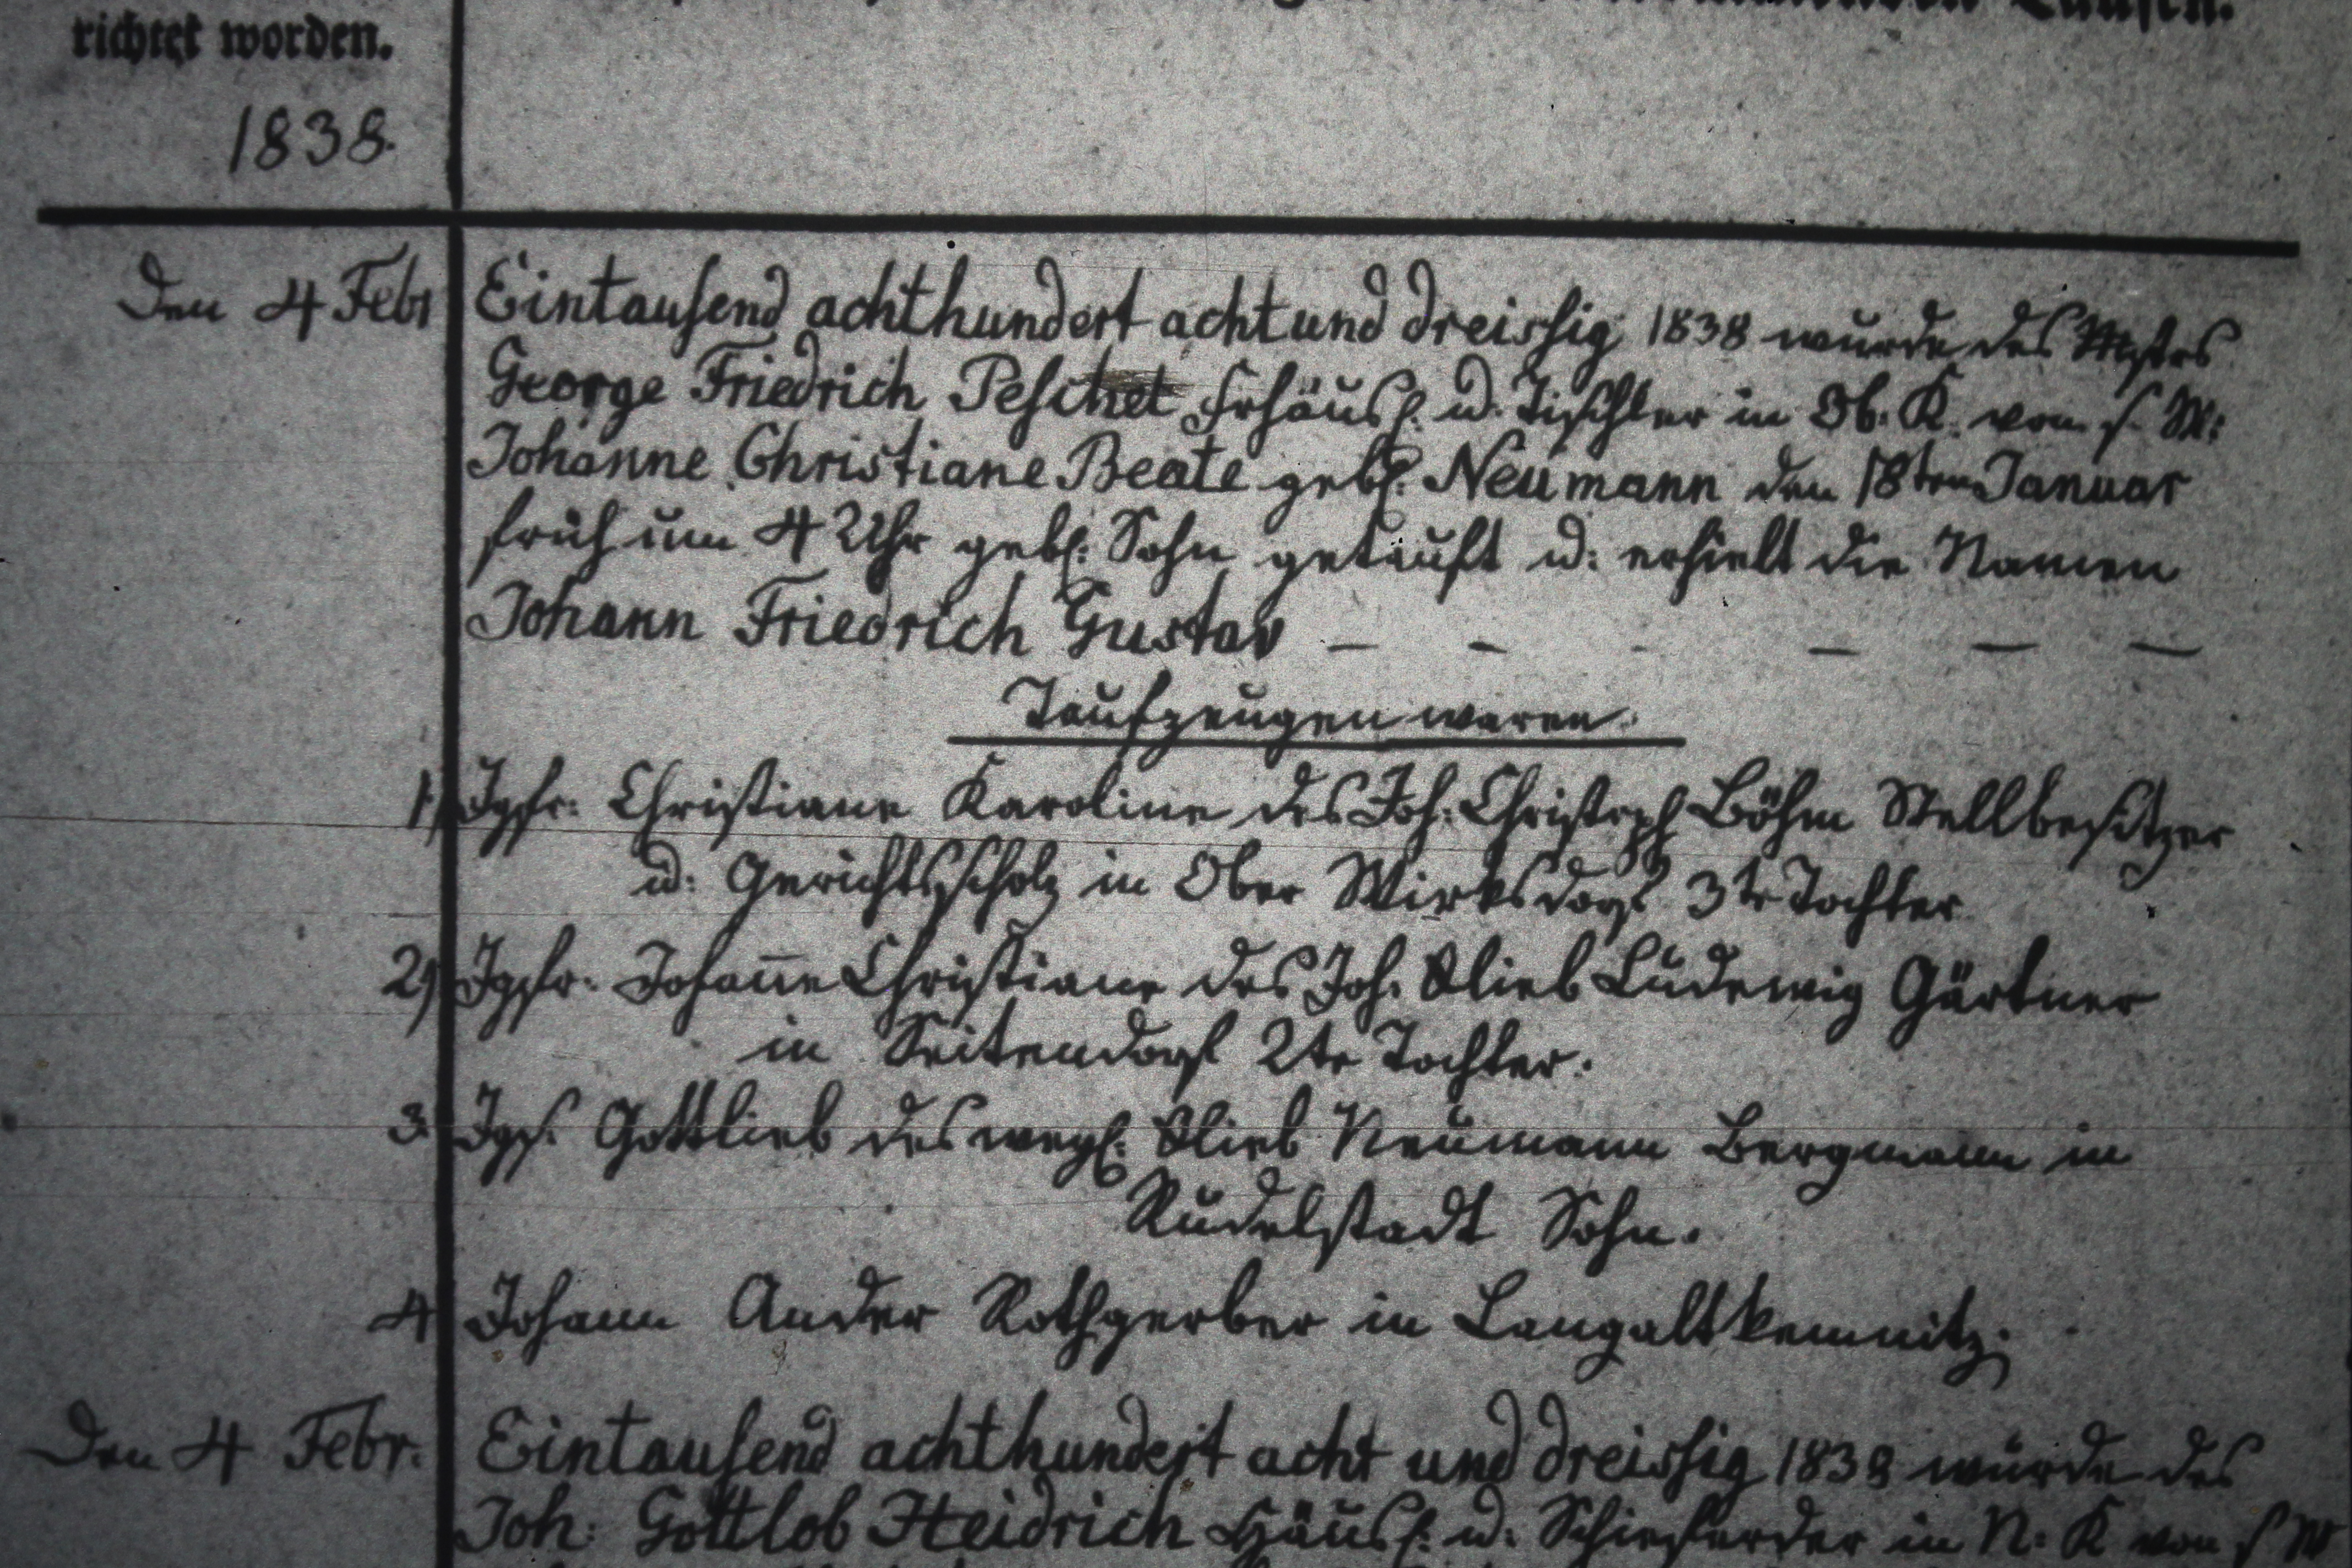 richtet worden.
1838.
Den 4 Febr Eintausend achthundert achtund dreissig 1838 wurde des Mstrs
George Friedrich Peschel Frhäusl: u. Tischler in Ob: K. von s. W:
Johanne Christiane Beate gebl: Neumann den 18ten Januar
früh um 4 Uhr gebl: Sohn getauft u: erhielt die Namen
Johann Friedrich Gustav — - - — — —
Taufzeugen waren.
1, Jgfr: Christiane Karoline des Joh: Christoph Böhm Stellbesitzer
u: Gerichtsscholz in Ober Wirksdorf 3te Tochter
2, Jgfr: Johanne Christiane des Joh. Glieb Ludewig Gärtner
in Seitendorf 2te Tochter.
3, Jgs. Gottlieb des weyl: Glieb Neumann Bergmann in
Rudelstadt Sohn.
4 Johann Ander Rothgerber in Langaltkemnitz.
Den 4 Febr. Eintausend achthundert acht und dreissig 1838 wurde des
Joh: Gottlob Heidrich Häusl: u: in N: K von s W